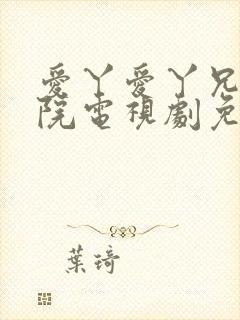 愛丫愛丫兄
院電視劇免
葉琦